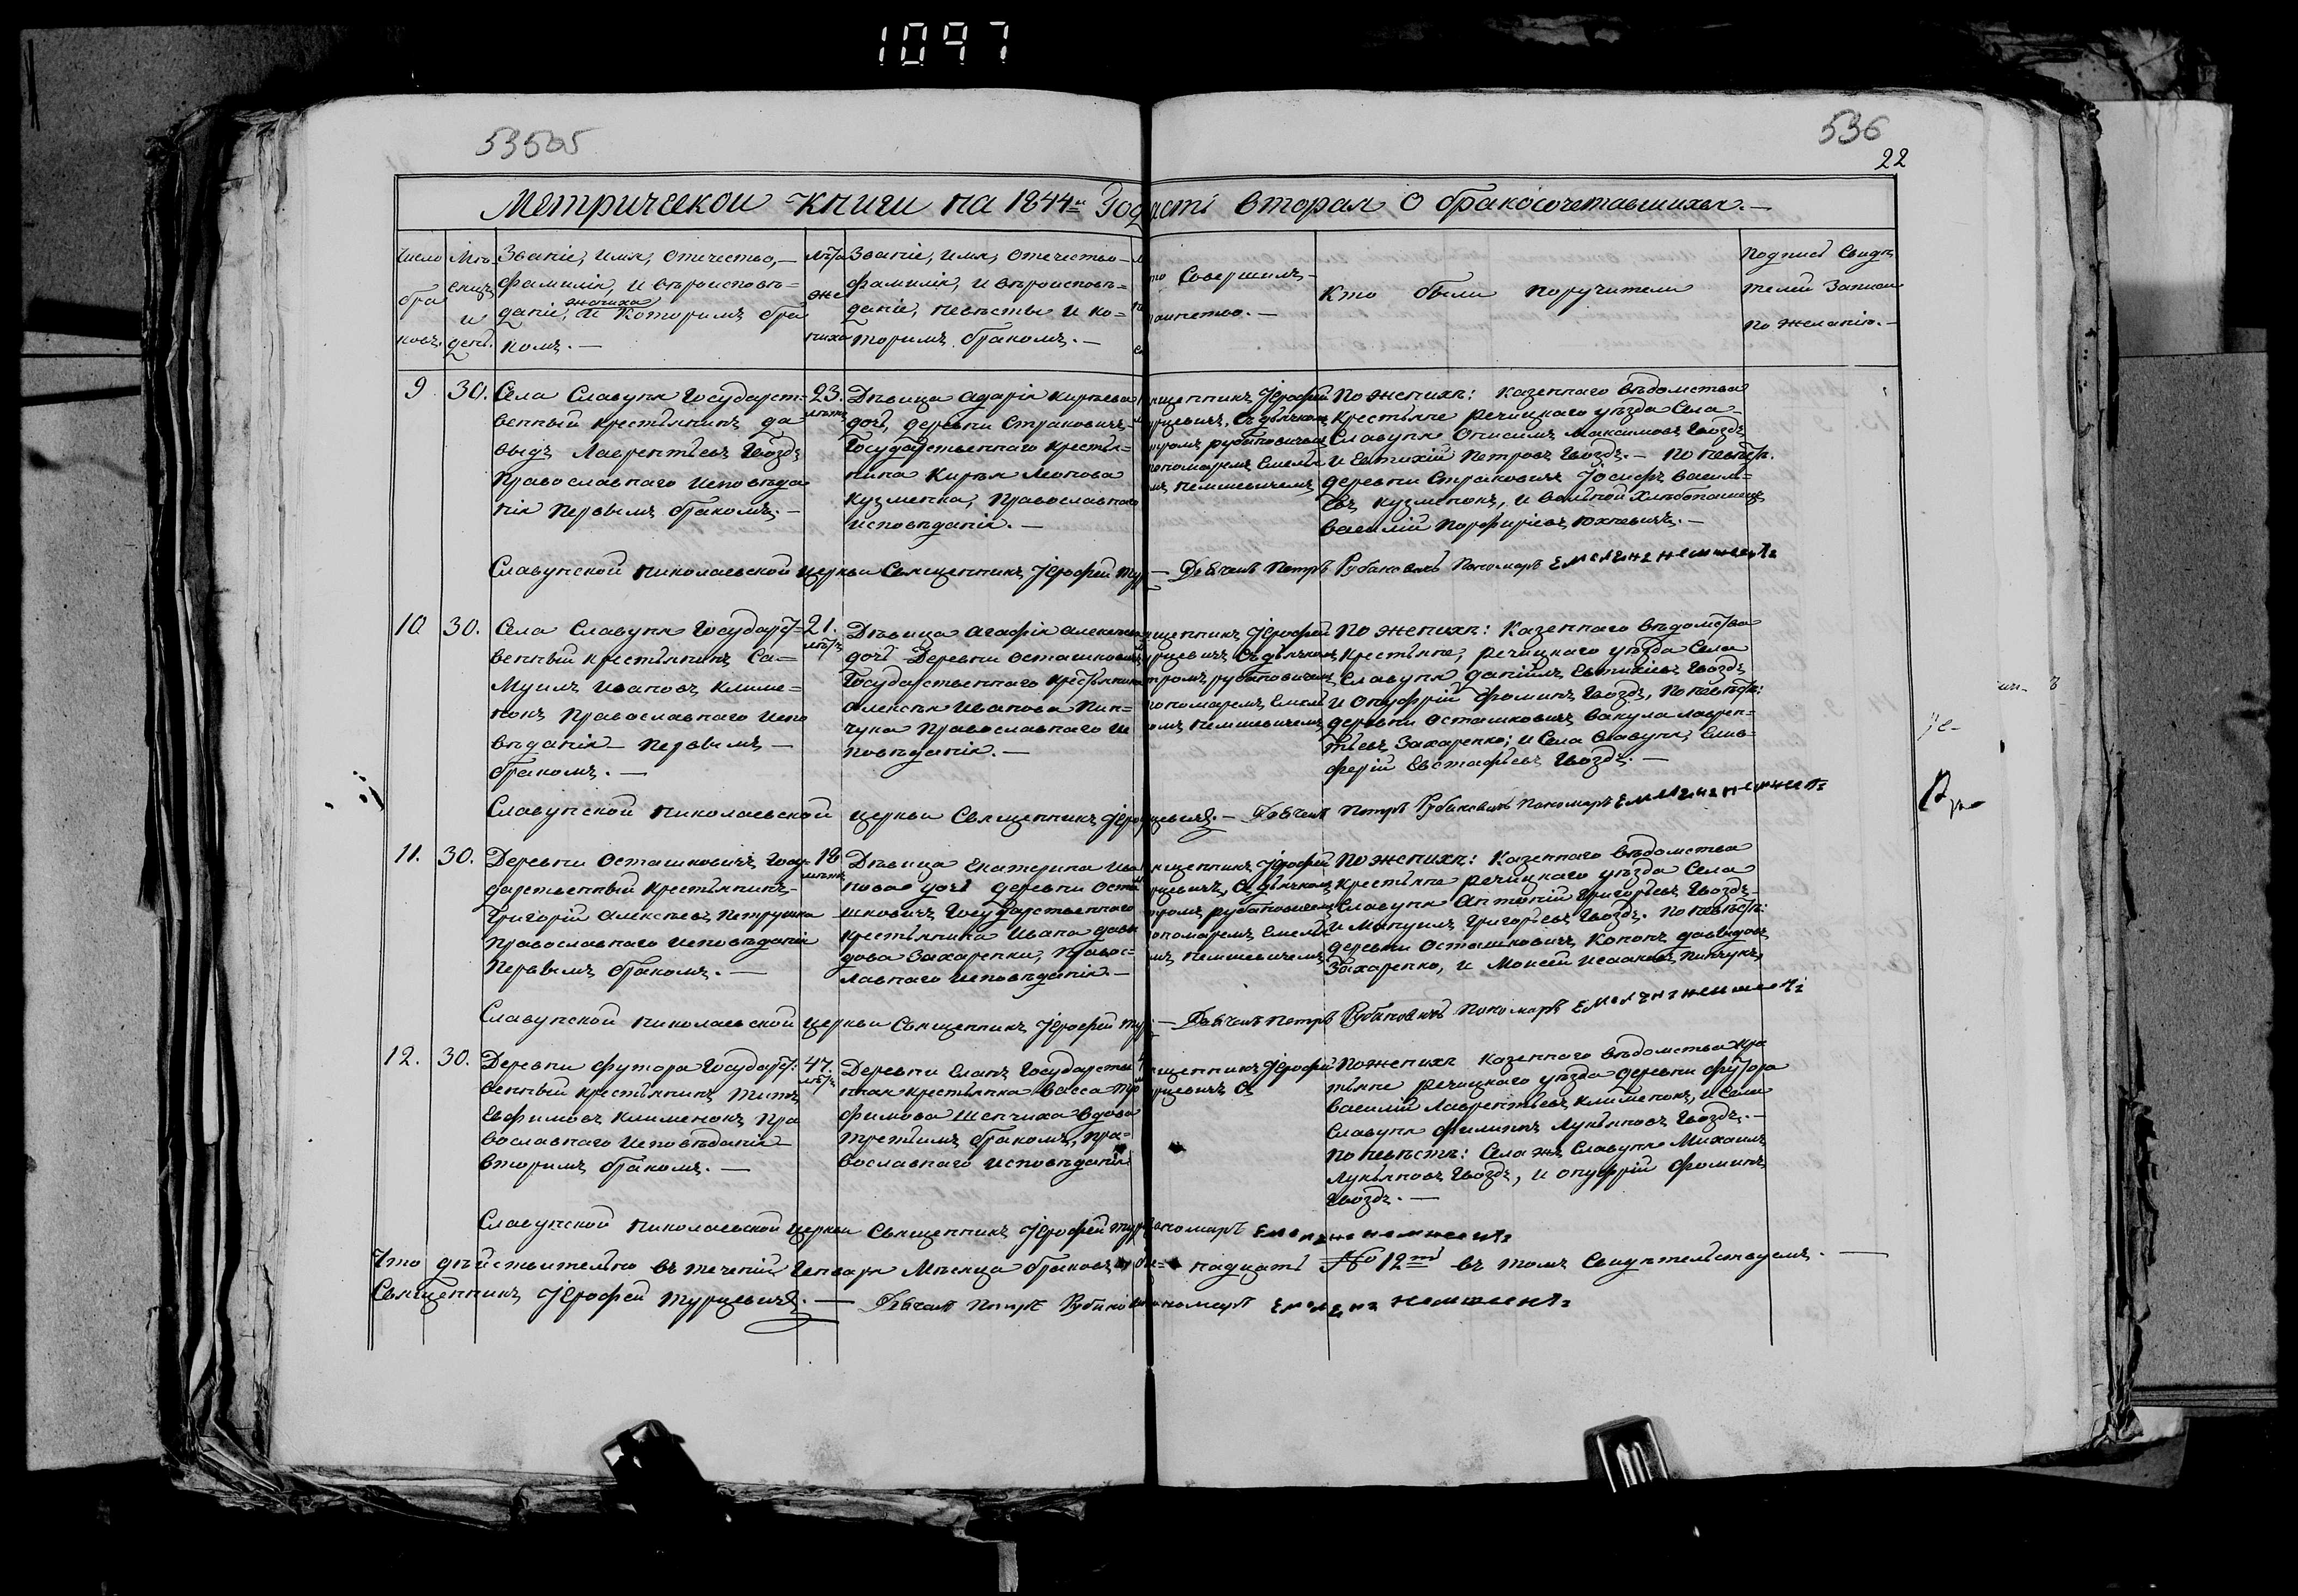 1097
53505
536
22
Метрической Книги на 1844й Год
асти вторая О бракосочетавшихся.—
Число бра ковъ.
Мѣсяцъ и день.
Званіе, имя, отечество,—
фамилія, и вѣроисповѣ=
даніе, жениха и которымъ бра
комъ.—
Лѣта же ниха
Званіе, имя, отечество—
фамилія, и вѣроисповѣ=
даніе, невѣсты и ко=
торымъ бракомъ.—
то Совершилъ
таинство.—
Кто были поручители
Подписи Свидѣ
телей Записи
по желанію.—
9
30.
Села Славуня Государст=
венный крестьянинъ да
выдъ Лаврентьевъ Гвоздъ
Православнаго исповѣда
нія первымъ бракомъ.—
23. лѣтъ
Дѣвица Дарія Кирѣева
дочь, деревни Страковичъ
Государственнаго крестья=
нина Кирѣя Леонова
Кузменка, Православнаго
исповѣданія.—
ященникъ Іерофей
урцевичъ, Съ дьячкомъ
тромъ рубановичемъ
пономаремъ Емелья
мъ немшевичемъ
По женихѣ: казеннаго вѣдомства
крестьяне речицкаго уѣзда Села
Славуня Онисимъ Максимовъ Гвоздъ
и Евтихій Петровъ Гвоздъ.— По невѣстѣ.
деревни Страковичъ Іосифъ Василь=
евъ кузменокъ, и вольной хлѣбопашецъ
василій Порфиріевъ Юхневичъ.—
Славунской николаевской церкви Священникъ Іерофей тур — Дьячекъ Петръ Рубановичъ Пономарь
10
30.
Села Славуня Государст=
венный крестьянинъ Са=
муилъ Ивановъ Климе=
нокъ Православнаго испо
вѣданія первымъ
бракомъ.—
21. лѣтъ
Дѣвица Агафія Алексѣева
дочь Деревни Осташковичъ
Государственнаго крестьянина
Алексѣя Иванова Пин=
чука Православнаго ис
повѣданія.—
ященникъ Іерофей
урцевичъ Съ дьячкомъ
тромъ рубановичемъ
пономаремъ Емелья
номъ немшевичемъ
По женихѣ: Казеннаго вѣдомства
крестьяне, речицкаго уѣзда Села
Славуня даніилъ Евтихіевъ Гвоздъ
и Онуфрій Фоминъ Гвоздъ, По невѣстѣ:
деревни Осташковичъ Вакула лаврен=
тьевъ Захаренко; и Села Славуня, Елев=
ферій Евстафьевъ Гвоздъ.—
Славунской николаевской церкви Священникъ Іеро цевичъ.— Дьячекъ Петръ Рубановичъ Пономарь
11.
30.
Деревни Осташковичъ Госу=
дарственный крестьянинъ
Григорій Алексѣевъ Петрушка
Православнаго исповѣданія
Первымъ бракомъ.—
18 лѣтъ
Дѣвица Екатерина Ива
нова дочь деревни Оста
шковичъ Государственнаго
крестьянина Ивана давы
дова Захаренки, Правос=
лавнаго исповѣданія—
ященникъ Іерофей
урцевичъ, Съ дьячкомъ
тромъ рубановичемъ
пономаремъ Емелья
мъ, немшевичемъ
По женихѣ: Казеннаго вѣдомства
крестьяне речицкаго уѣзда Села
Славуня Антоній Григорьевъ Гвоздъ
и Мануилъ Григорьевъ Гвоздъ. По невѣстѣ:
деревни Осташковичъ Кононъ давыдовъ
Захаренко, и Моисей Исааковъ пинчукъ
Славунской николаевской церкви Священникъ Іерофей тур — Дьячекъ Петръ Рубановичъ Пономарь
12.
30.
Деревни футора Государст=
венный крестьянинъ Титъ
Евфимовъ Клименокъ Пра
вославнаго исповѣданія
вторымъ бракомъ.—
47. лѣтъ
Деревни Еланъ Государстве
нная крестьянка Васса Тро
фимова Шенчиха вдова
третьимъ бракомъ, пра=
вославнаго исповѣданія
ященникъ Іерофей
урцевичъ С
По женихѣ казеннаго вѣдомства кре
тьяне речицкаго уѣзда деревни футора
василій Лаврентьевъ Клименокъ, и Села
Славуня филипъ Лукьяновъ Гвоздъ.—
По невѣстѣ: Села жъ Славуня Михаилъ
Лукьяновъ Гвоздъ, и онуфрій Фоминъ
Гвоздъ.—
Славунской николаевской церкви Священникъ Іерофей тур ономарь
Что дѣйствительно въ теченій Генваря Мѣсяца браковъ надцать № 12ть въ томъ Свидѣтельствуемъ.—
Священникъ Іерофей Турцевичъ.— Дьячекъ Петръ Рубано ономарь